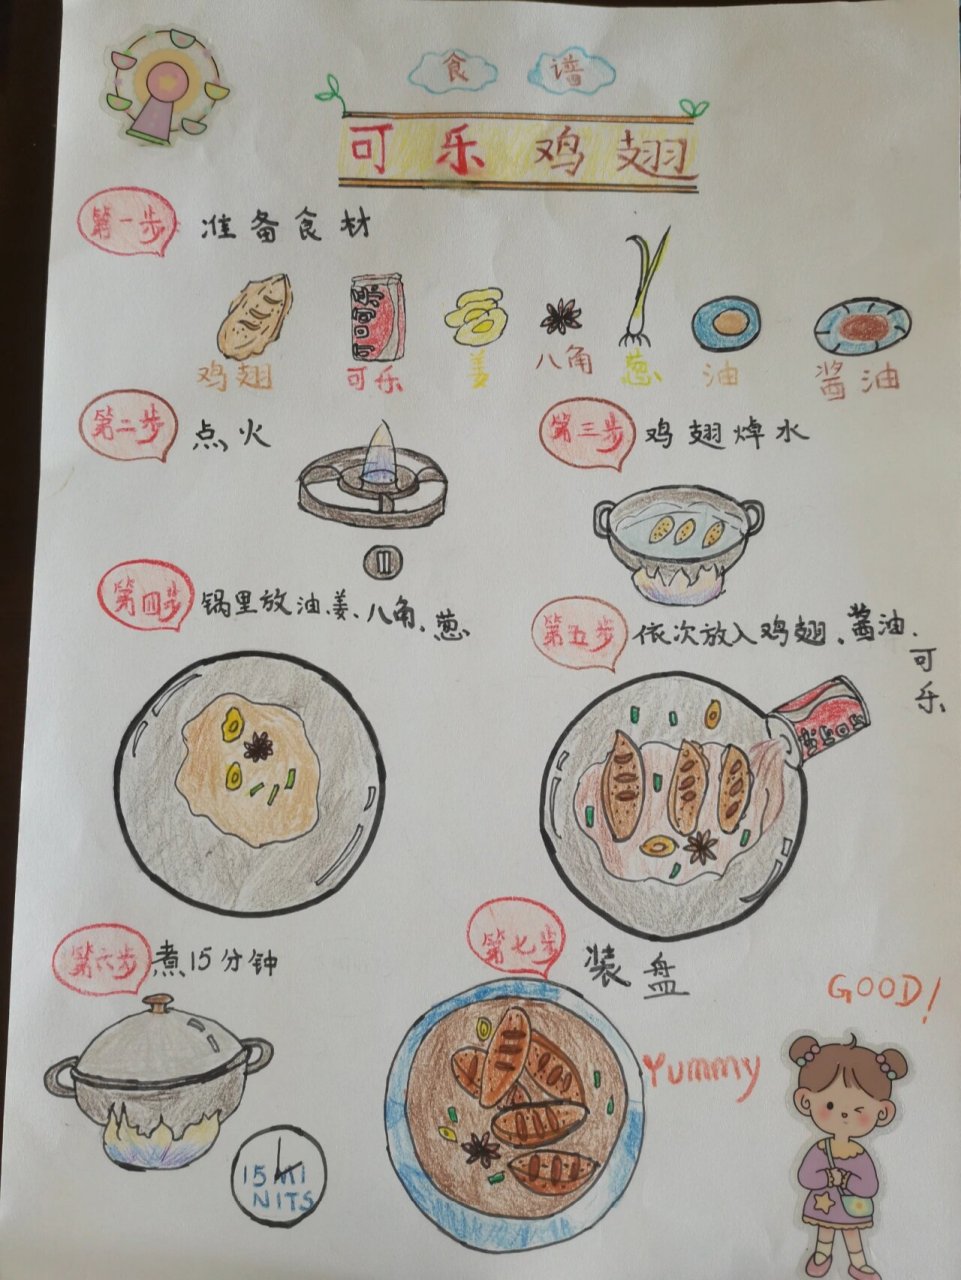 食谱
可乐鸡翅
第一步 准备食材
鸡翅 可乐 姜 八角 葱 油 酱油
第二步 点火
第三步 鸡翅焯水
第四步 锅里放油姜、八角、葱
第五步 依次放入鸡翅、酱油、
可乐
第六步 煮15分钟
15 MI
NITS
第七步 装盘
GOOD!
Yummy